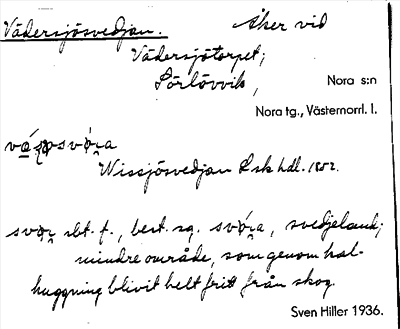 Vädersjösvedjan. Åker vid
Vädersjötorpet;
Sörlövvik,
Nora s:n
Nora tg., Västernorrl. l.
Wissjösvedjan Lsk hdl. 1802.
sbt. f., best. sg. svedjeland;
mindre område, som genom kal-
huggning blivit helt fritt från skog.
Sven Hiller 1936.